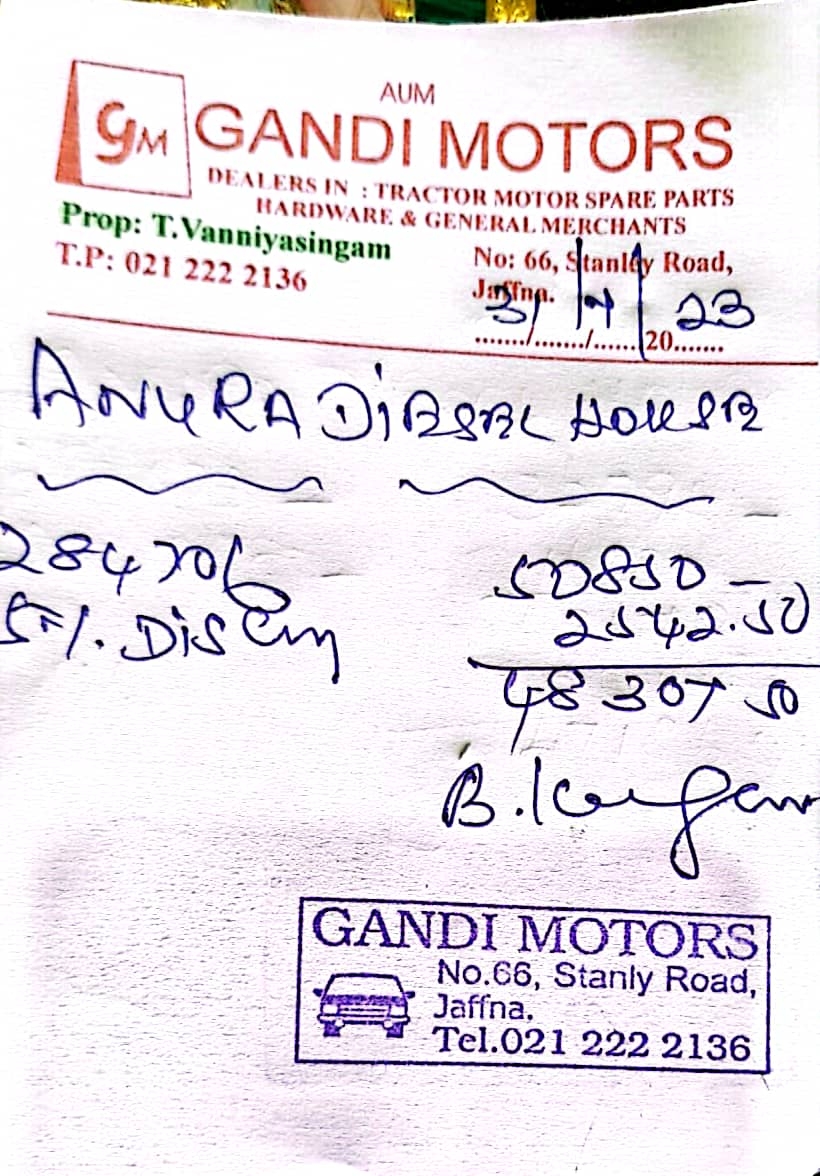 AUM
GM GANDI MOTORS
DEALERS IN : TRACTOR MOTOR SPARE PARTS
HARDWARE & GENERAL MERCHANTS
Prop: T.Vanniyasingam
T.P: 021 222 2136
No: 66, Stanley Road,
Jaffna.
31/4/2023
ANURA DIESEL HOUSE
284706 50850 –
5%. DISCount 2542.50
48307 50
GANDI MOTORS
No.66, Stanly Road,
Jaffna.
Tel.021 222 2136